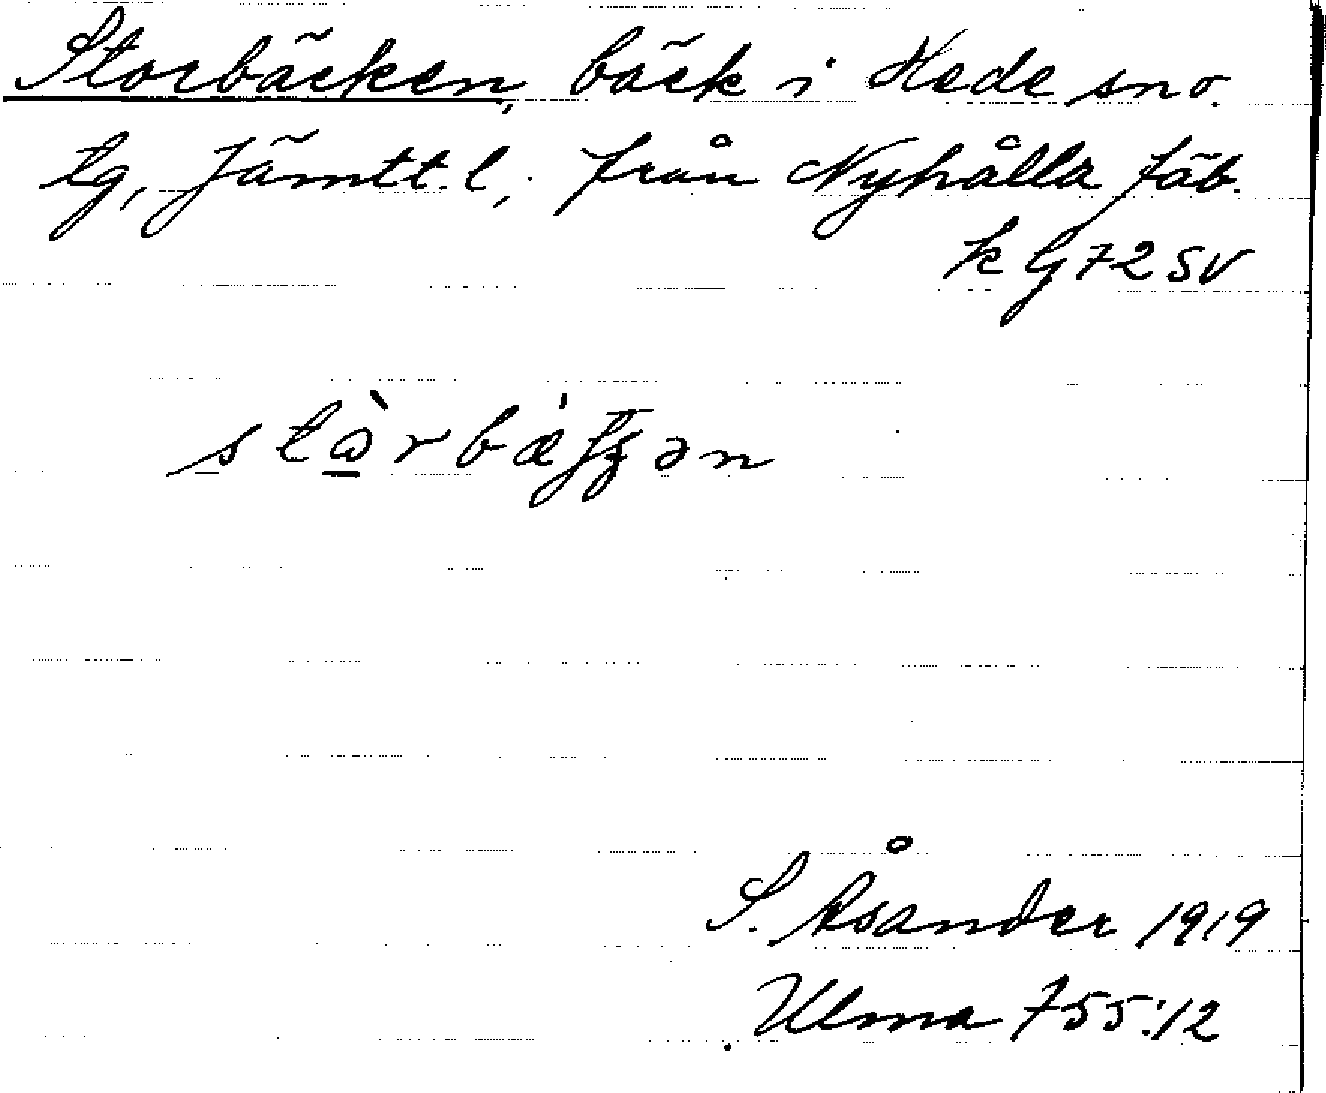 Storbäcken, bäck i Hede sno.
tg, Jämtl. l, från Nyhålla fäb.
k G 72 SV
S. Åsander 1919
Ulma 755:12